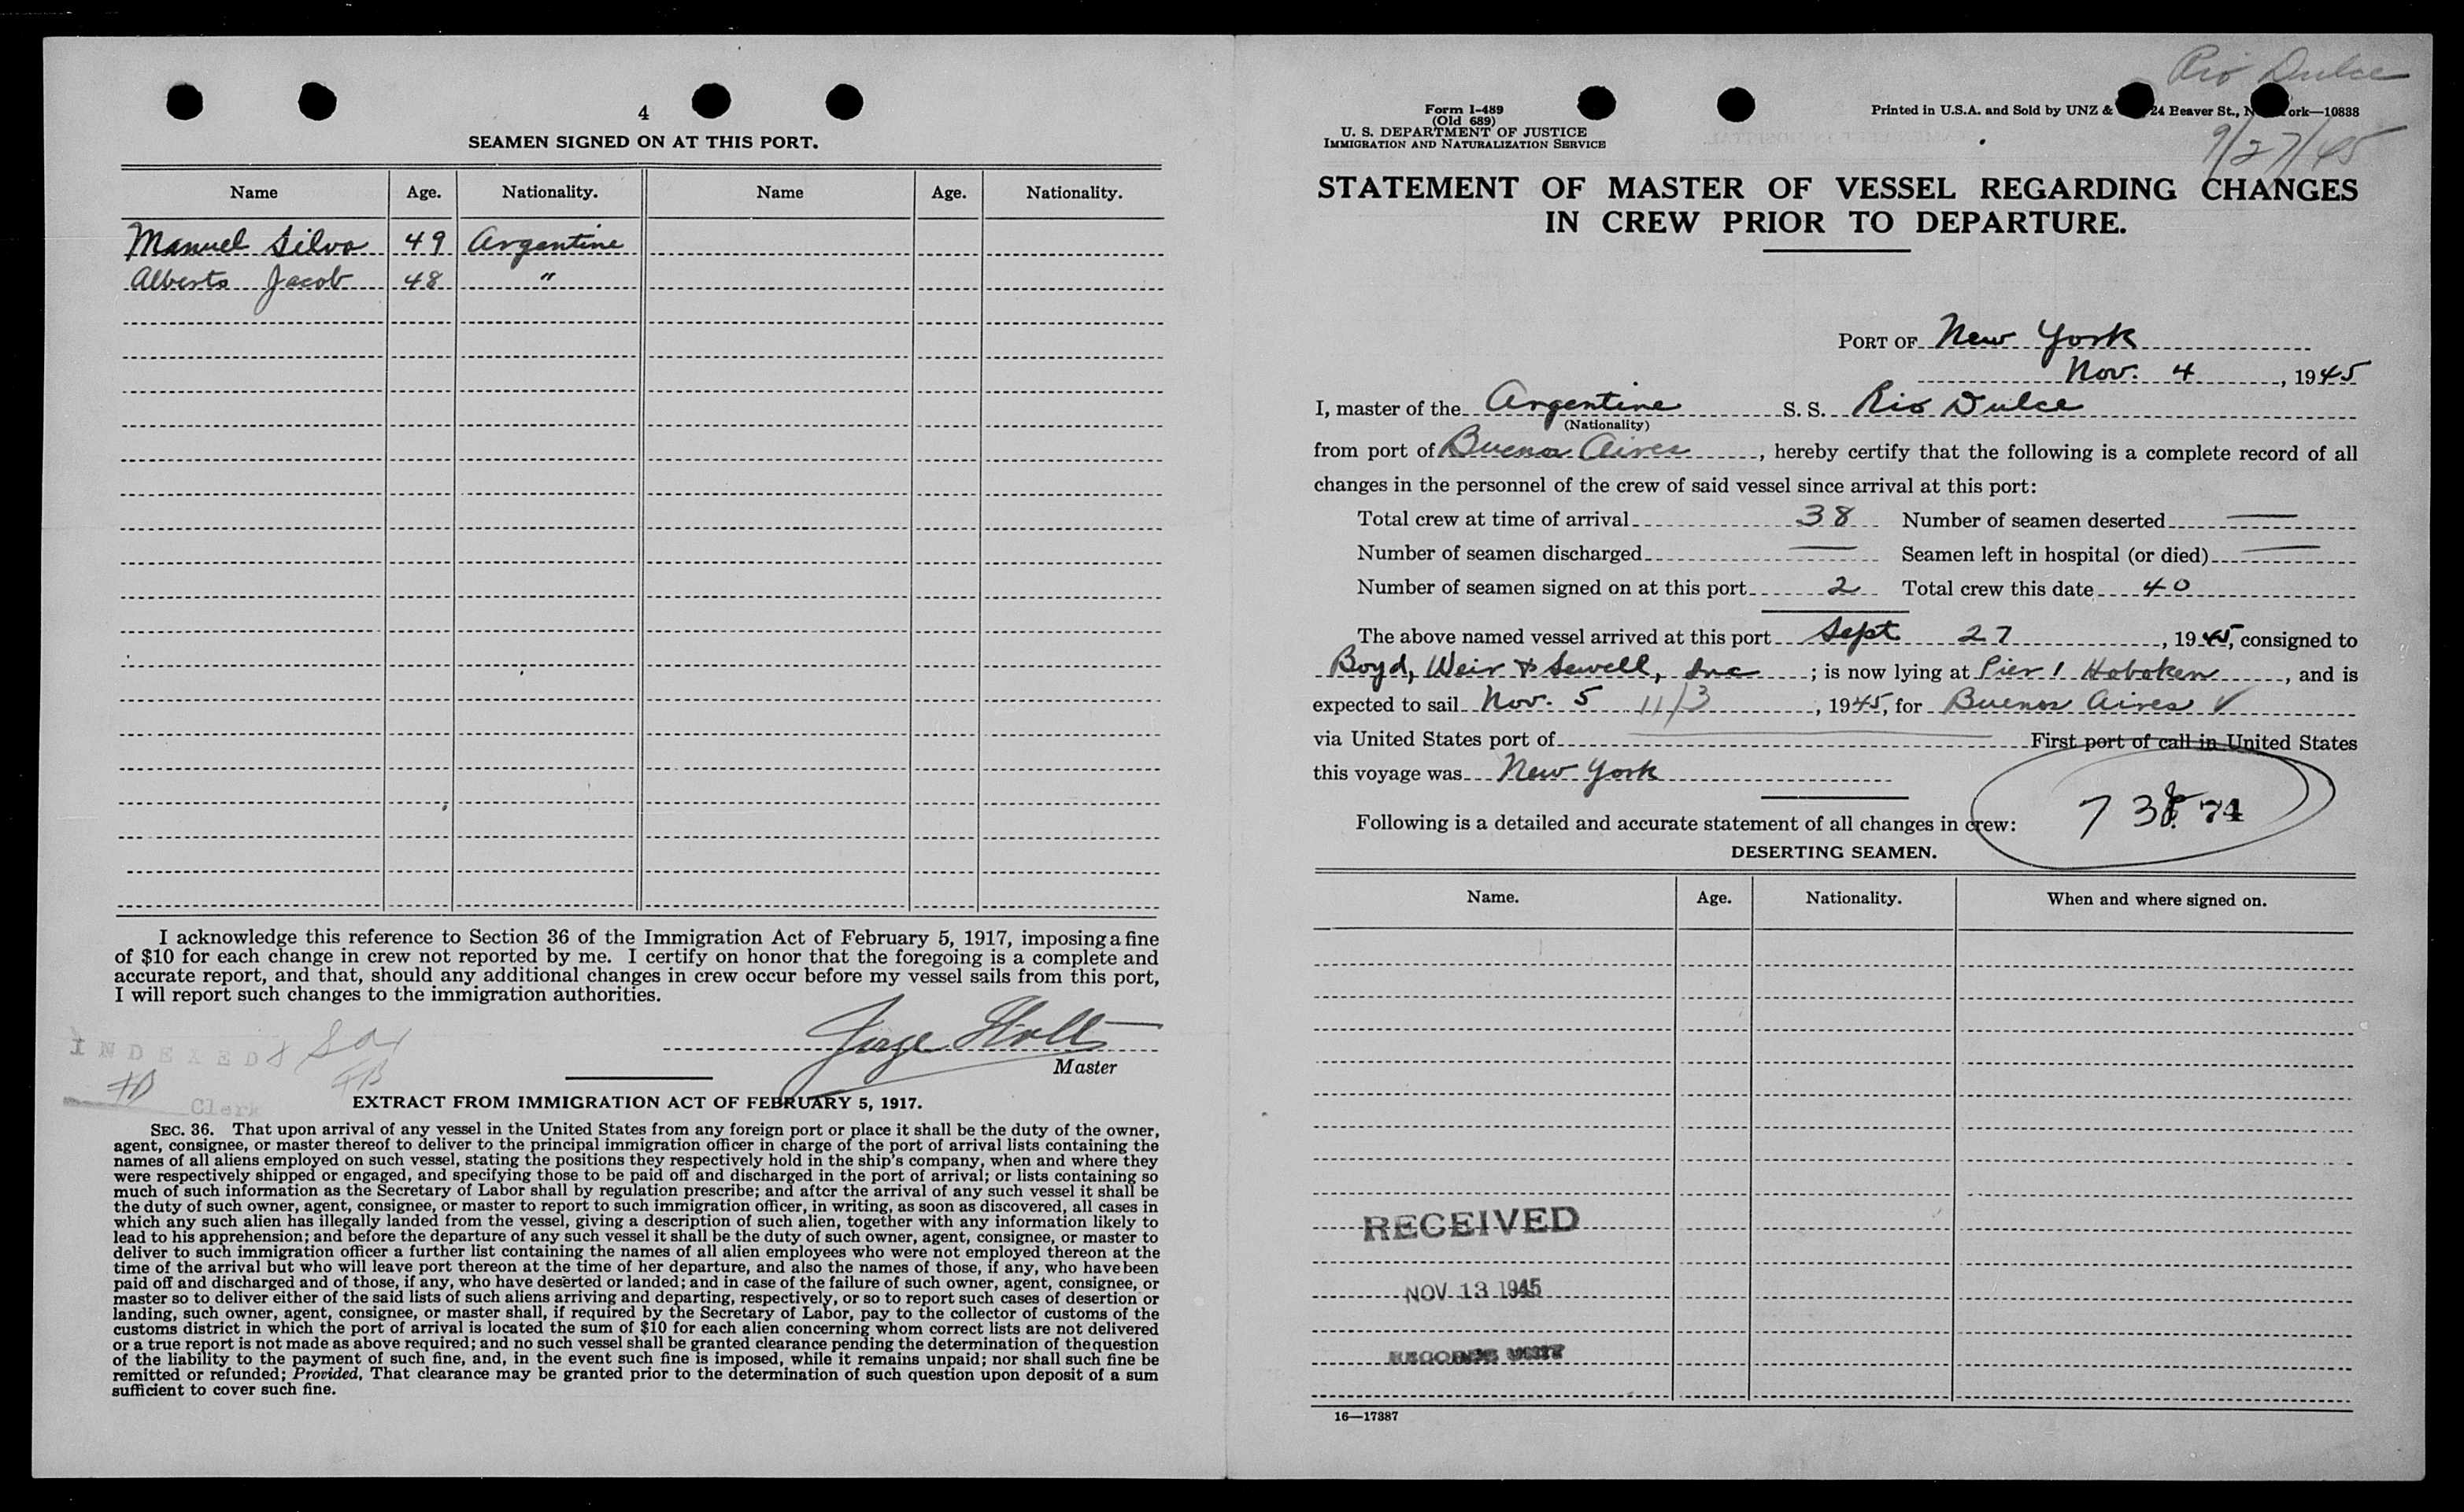 4
SEAMEN SIGNED ON AT THIS PORT.
Name Age. Nationality. Name Age. Nationality.
Manuel Silva 49 Argentine
Alberto Jacob 48 "
I acknowledge this reference to Section 36 of the Immigration Act of February 5, 1917, imposing a fine
of $10 for each change in crew not reported by me. I certify on honor that the foregoing is a complete and
accurate report, and that, should any additional changes in crew occur before my vessel sails from this port,
I will report such changes to the immigration authorities.
Jorge
Master
INDEXED
Clerk
EXTRACT FROM IMMIGRATION ACT OF FEBRUARY 5, 1917.
SEC. 36. That upon arrival of any vessel in the United States from any foreign port or place it shall be the duty of the owner,
agent, consignee, or master thereof to deliver to the principal immigration officer in charge of the port of arrival lists containing the
names of all aliens employed on such vessel, stating the positions they respectively hold in the ship's company, when and where they
were respectively shipped or engaged, and specifying those to be paid off and discharged in the port of arrival; or lists containing so
much of such information as the Secretary of Labor shall by regulation prescribe; and after the arrival of any such vessel it shall be
the duty of such owner, agent, consignee, or master to report to such immigration officer, in writing, as soon as discovered, all cases in
which any such alien has illegally landed from the vessel, giving a description of such alien, together with any information likely to
lead to his apprehension; and before the departure of any such vessel it shall be the duty of such owner, agent, consignee, or master to
deliver to such immigration officer a further list containing the names of all alien employees who were not employed thereon at the
time of the arrival but who will leave port thereon at the time of her departure, and also the names of those, if any, who have been
paid off and discharged and of those, if any, who have deserted or landed; and in case of the failure of such owner, agent, consignee, or
master so to deliver either of the said lists of such aliens arriving and departing, respectively, or so to report such cases of desertion or
landing, such owner, agent, consignee, or master shall, if required by the Secretary of Labor, pay to the collector of customs of the
customs district in which the port of arrival is located the sum of $10 for each alien concerning whom correct lists are not delivered
or a true report is not made as above required; and no such vessel shall be granted clearance pending the determination of the question
of the liability to the payment of such fine, and, in the event such fine is imposed, while it remains unpaid; nor shall such fine be
remitted or refunded; Provided, That clearance may be granted prior to the determination of such question upon deposit of a sum
sufficient to cover such fine.
Rio Dulce
9/27/45
Form I-489
(Old 689)
U. S. DEPARTMENT OF JUSTICE
IMMIGRATION AND NATURALIZATION SERVICE
Printed in U.S.A. and Sold by UNZ & 24 Beaver St., N ork—10838
STATEMENT OF MASTER OF VESSEL REGARDING CHANGES
IN CREW PRIOR TO DEPARTURE.
PORT OF New York
Nov. 4, 1945
I, master of the Argentine S. S. Rio Dulce
(Nationality)
from port of Buenos Aires, hereby certify that the following is a complete record of all
changes in the personnel of the crew of said vessel since arrival at this port:
Total crew at time of arrival 38 Number of seamen deserted —
Number of seamen discharged — Seamen left in hospital (or died) —
Number of seamen signed on at this port 2 Total crew this date 40
The above named vessel arrived at this port Sept 27, 1945, consigned to
Boyd, Weir & Sewell, Inc; is now lying at Pier 1 Hoboken, and is
expected to sail Nov. 5 11/3, 1945, for Buenos Aires ✓
via United States port of — First port of call in United States
this voyage was New York
Following is a detailed and accurate statement of all changes in crew:
74
DESERTING SEAMEN.
Name. Age. Nationality. When and where signed on.
RECEIVED
NOV 13 1945
RECORDS UNIT
16—17387